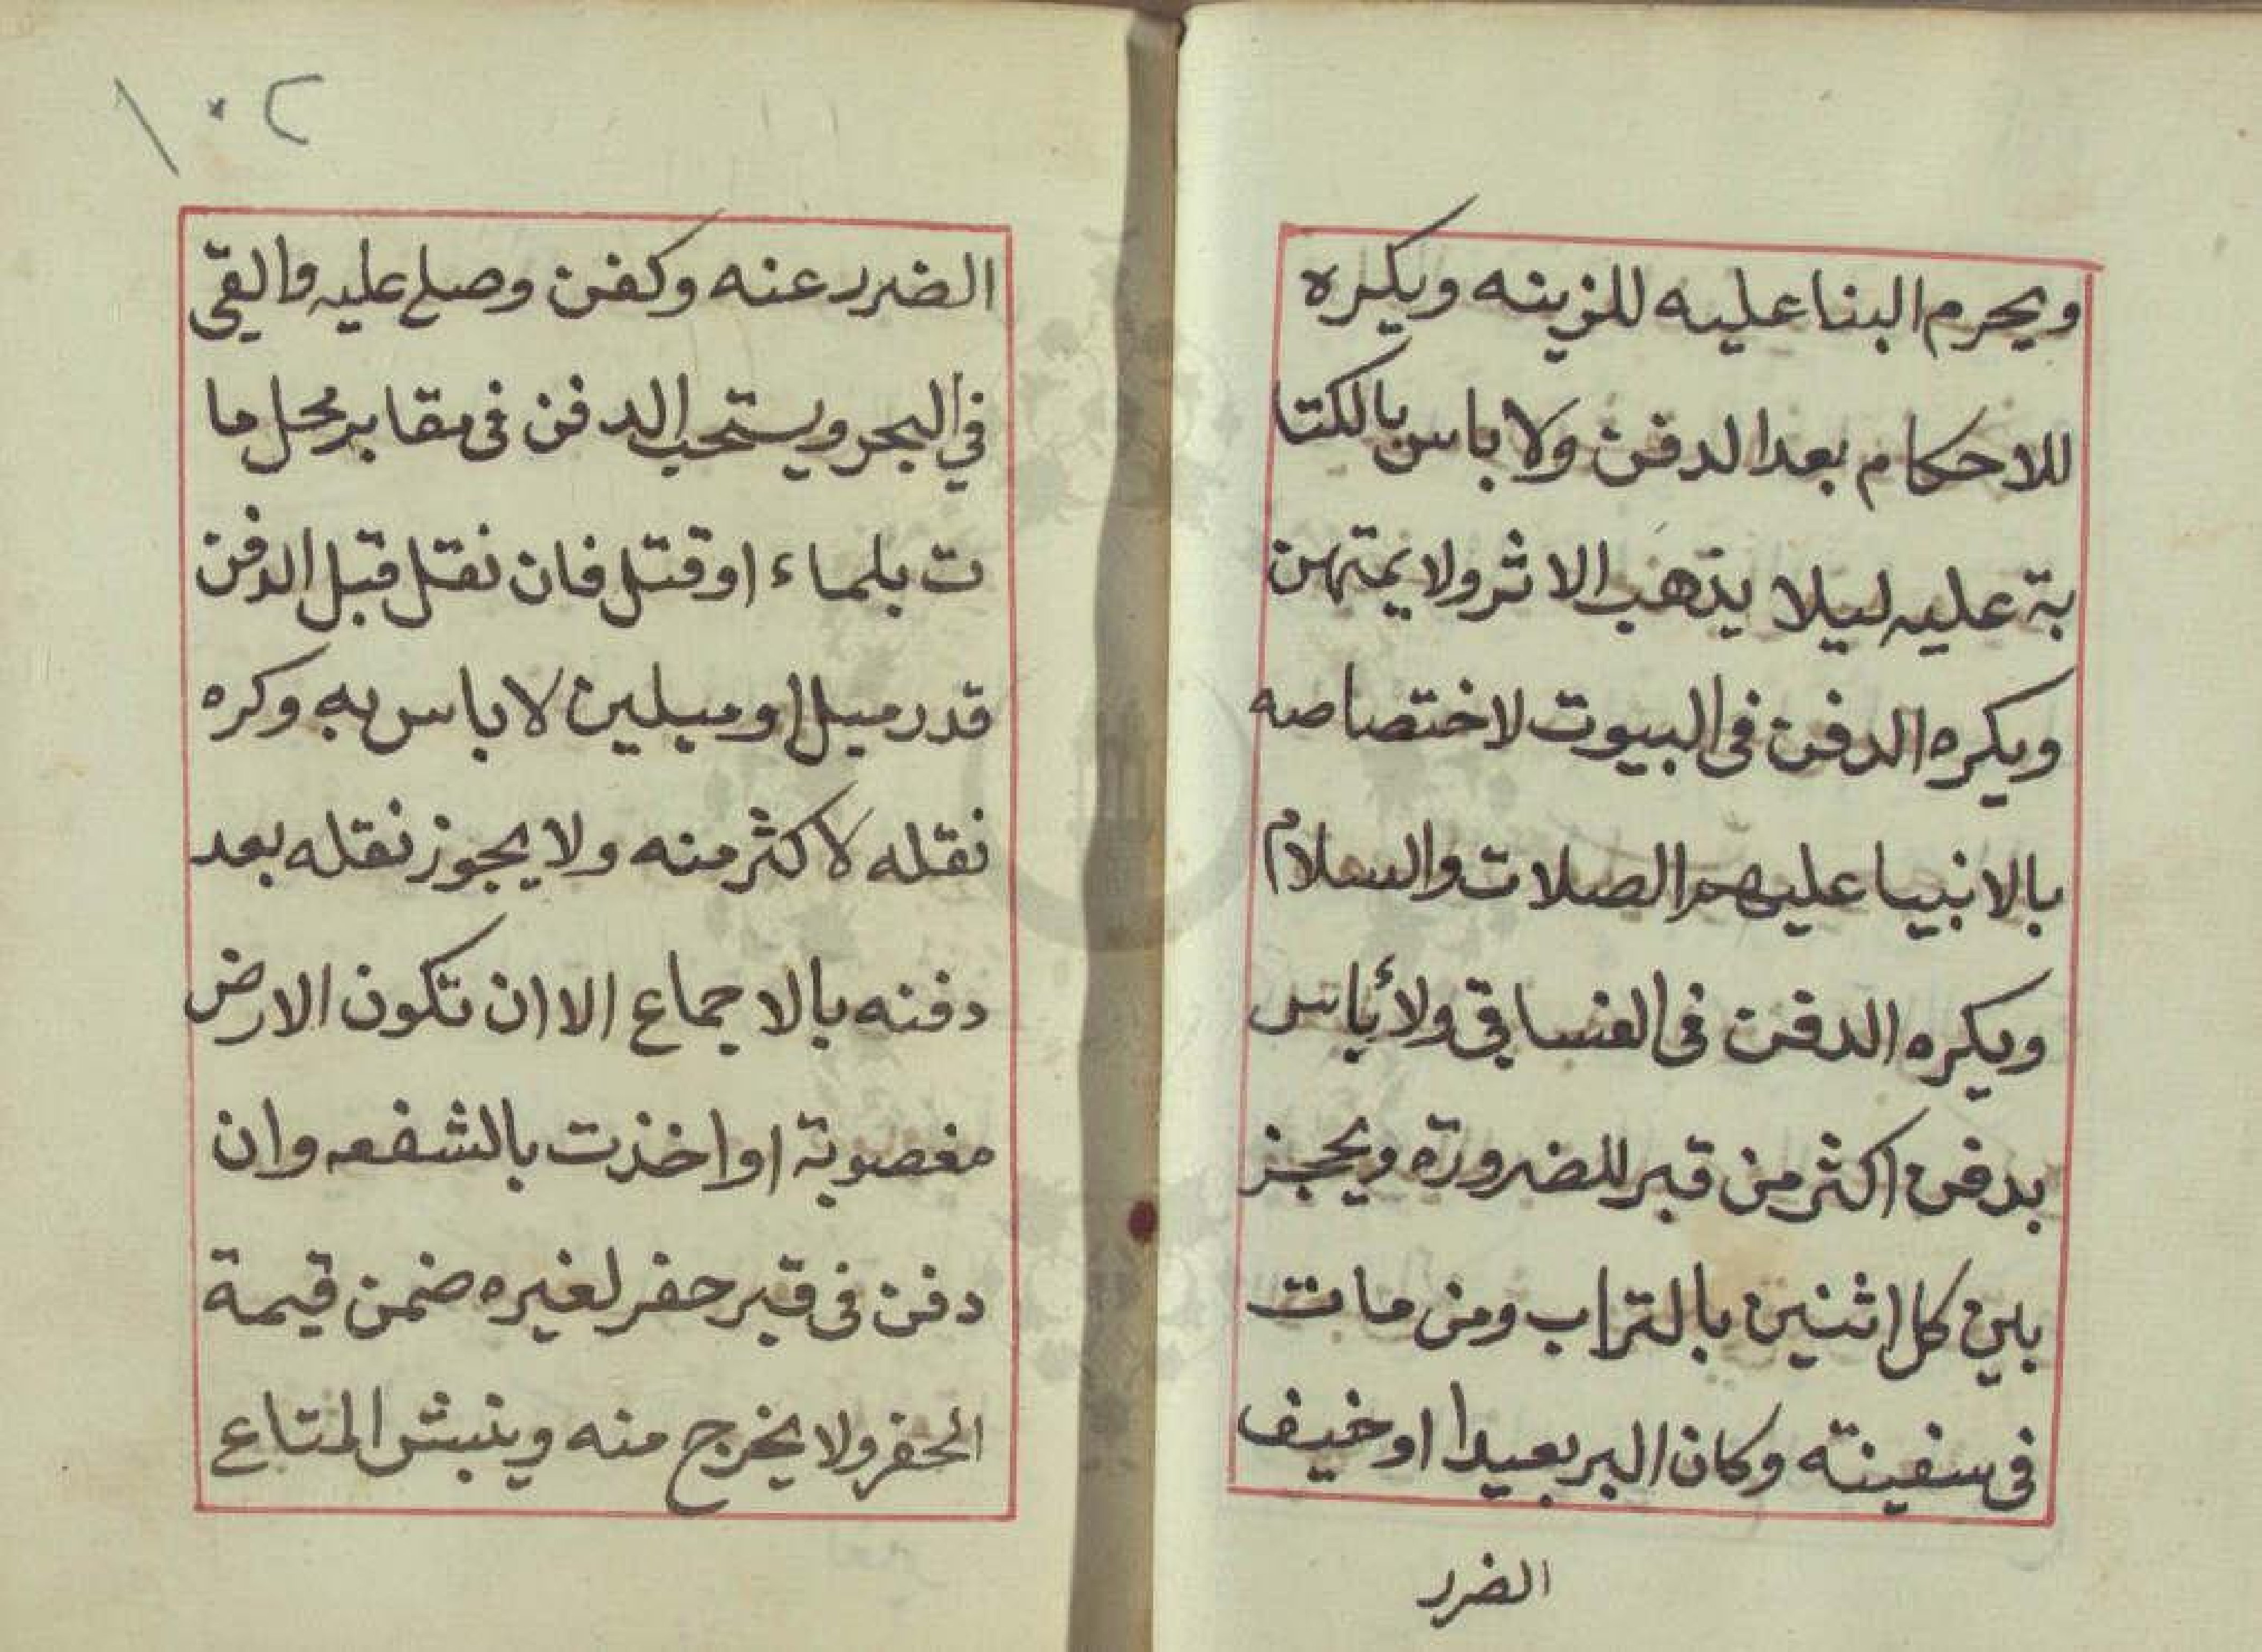 ويحرم البنا عليه للزينه ويكره
للاحكام بعد الدفن ولا باس بالكتا
بة عليه ليلا يذهب الاثر ولا يمتهن
ويكره الدفن فى البيوت لاختصاصه
بالانبيا عليهم الصلات والسلام
ويكره الدفن فى الفساقى ولا باس
بدفن اكثر من قبر للضرورة ويحجز
بين كل اثنين بالتراب ومن مات
فى سفينة وكان البر بعيدا او خيف
الضرر
١٠٢
الضرر عنه وكفن وصلع عليه والقى
في البحر ويستحب الدفن فى مقابر محل ما
ت بلماء او قتل فان نقل قبل الدفن
قدر ميل او ميلين لا باس به وكره
نقله لاكثر منه ولا يجوز نقله بعد
دفنه بالاجماع الا ان تكون الارض
مغصوبة او اخذت بالشفعه وان
دفن فى قبر حفر لغيره ضمن قيمة
الحفر ولا يخرج منه وينبش المتاع